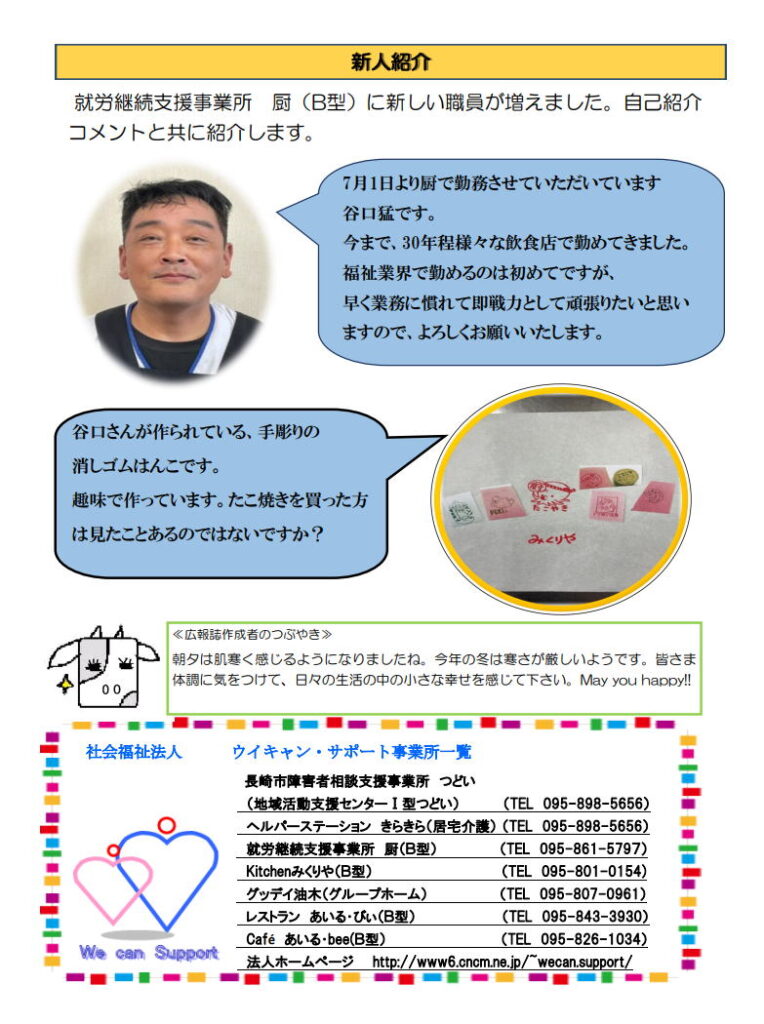 新人紹介
就労継続支援事業所　厨（B型）に新しい職員が増えました。自己紹介
コメントと共に紹介します。
7月1日より厨で勤務させていただいています
谷口猛です。
今まで、30年程様々な飲食店で勤めてきました。
福祉業界で勤めるのは初めてですが、
早く業務に慣れて即戦力として頑張りたいと思い
ますので、よろしくお願いいたします。
谷口さんが作られている、手彫りの
消しゴムはんこです。
趣味で作っています。たこ焼きを買った方
は見たことあるのではないですか？
たこやき
みくりや
≪広報誌作成者のつぶやき≫
朝夕は肌寒く感じるようになりましたね。今年の冬は寒さが厳しいようです。皆さま
体調に気をつけて、日々の生活の中の小さな幸せを感じて下さい。May you happy!!
社会福祉法人　　ウイキャン・サポート事業所一覧
長崎市障害者相談支援事業所　つどい
（地域活動支援センターⅠ型つどい）　（TEL 095-898-5656）
ヘルパーステーション　きらきら（居宅介護）（TEL 095-898-5656）
就労継続支援事業所　厨（B型）　（TEL 095-861-5797）
Kitchenみくりや（B型）　（TEL 095-801-0154）
グッデイ油木（グループホーム）　（TEL 095-807-0961）
レストラン　あいる・びい（B型）　（TEL 095-843-3930）
Café あいる・bee（B型）　（TEL 095-826-1034）
法人ホームページ　http://www6.cncm.ne.jp/~wecan.support/
We can Support